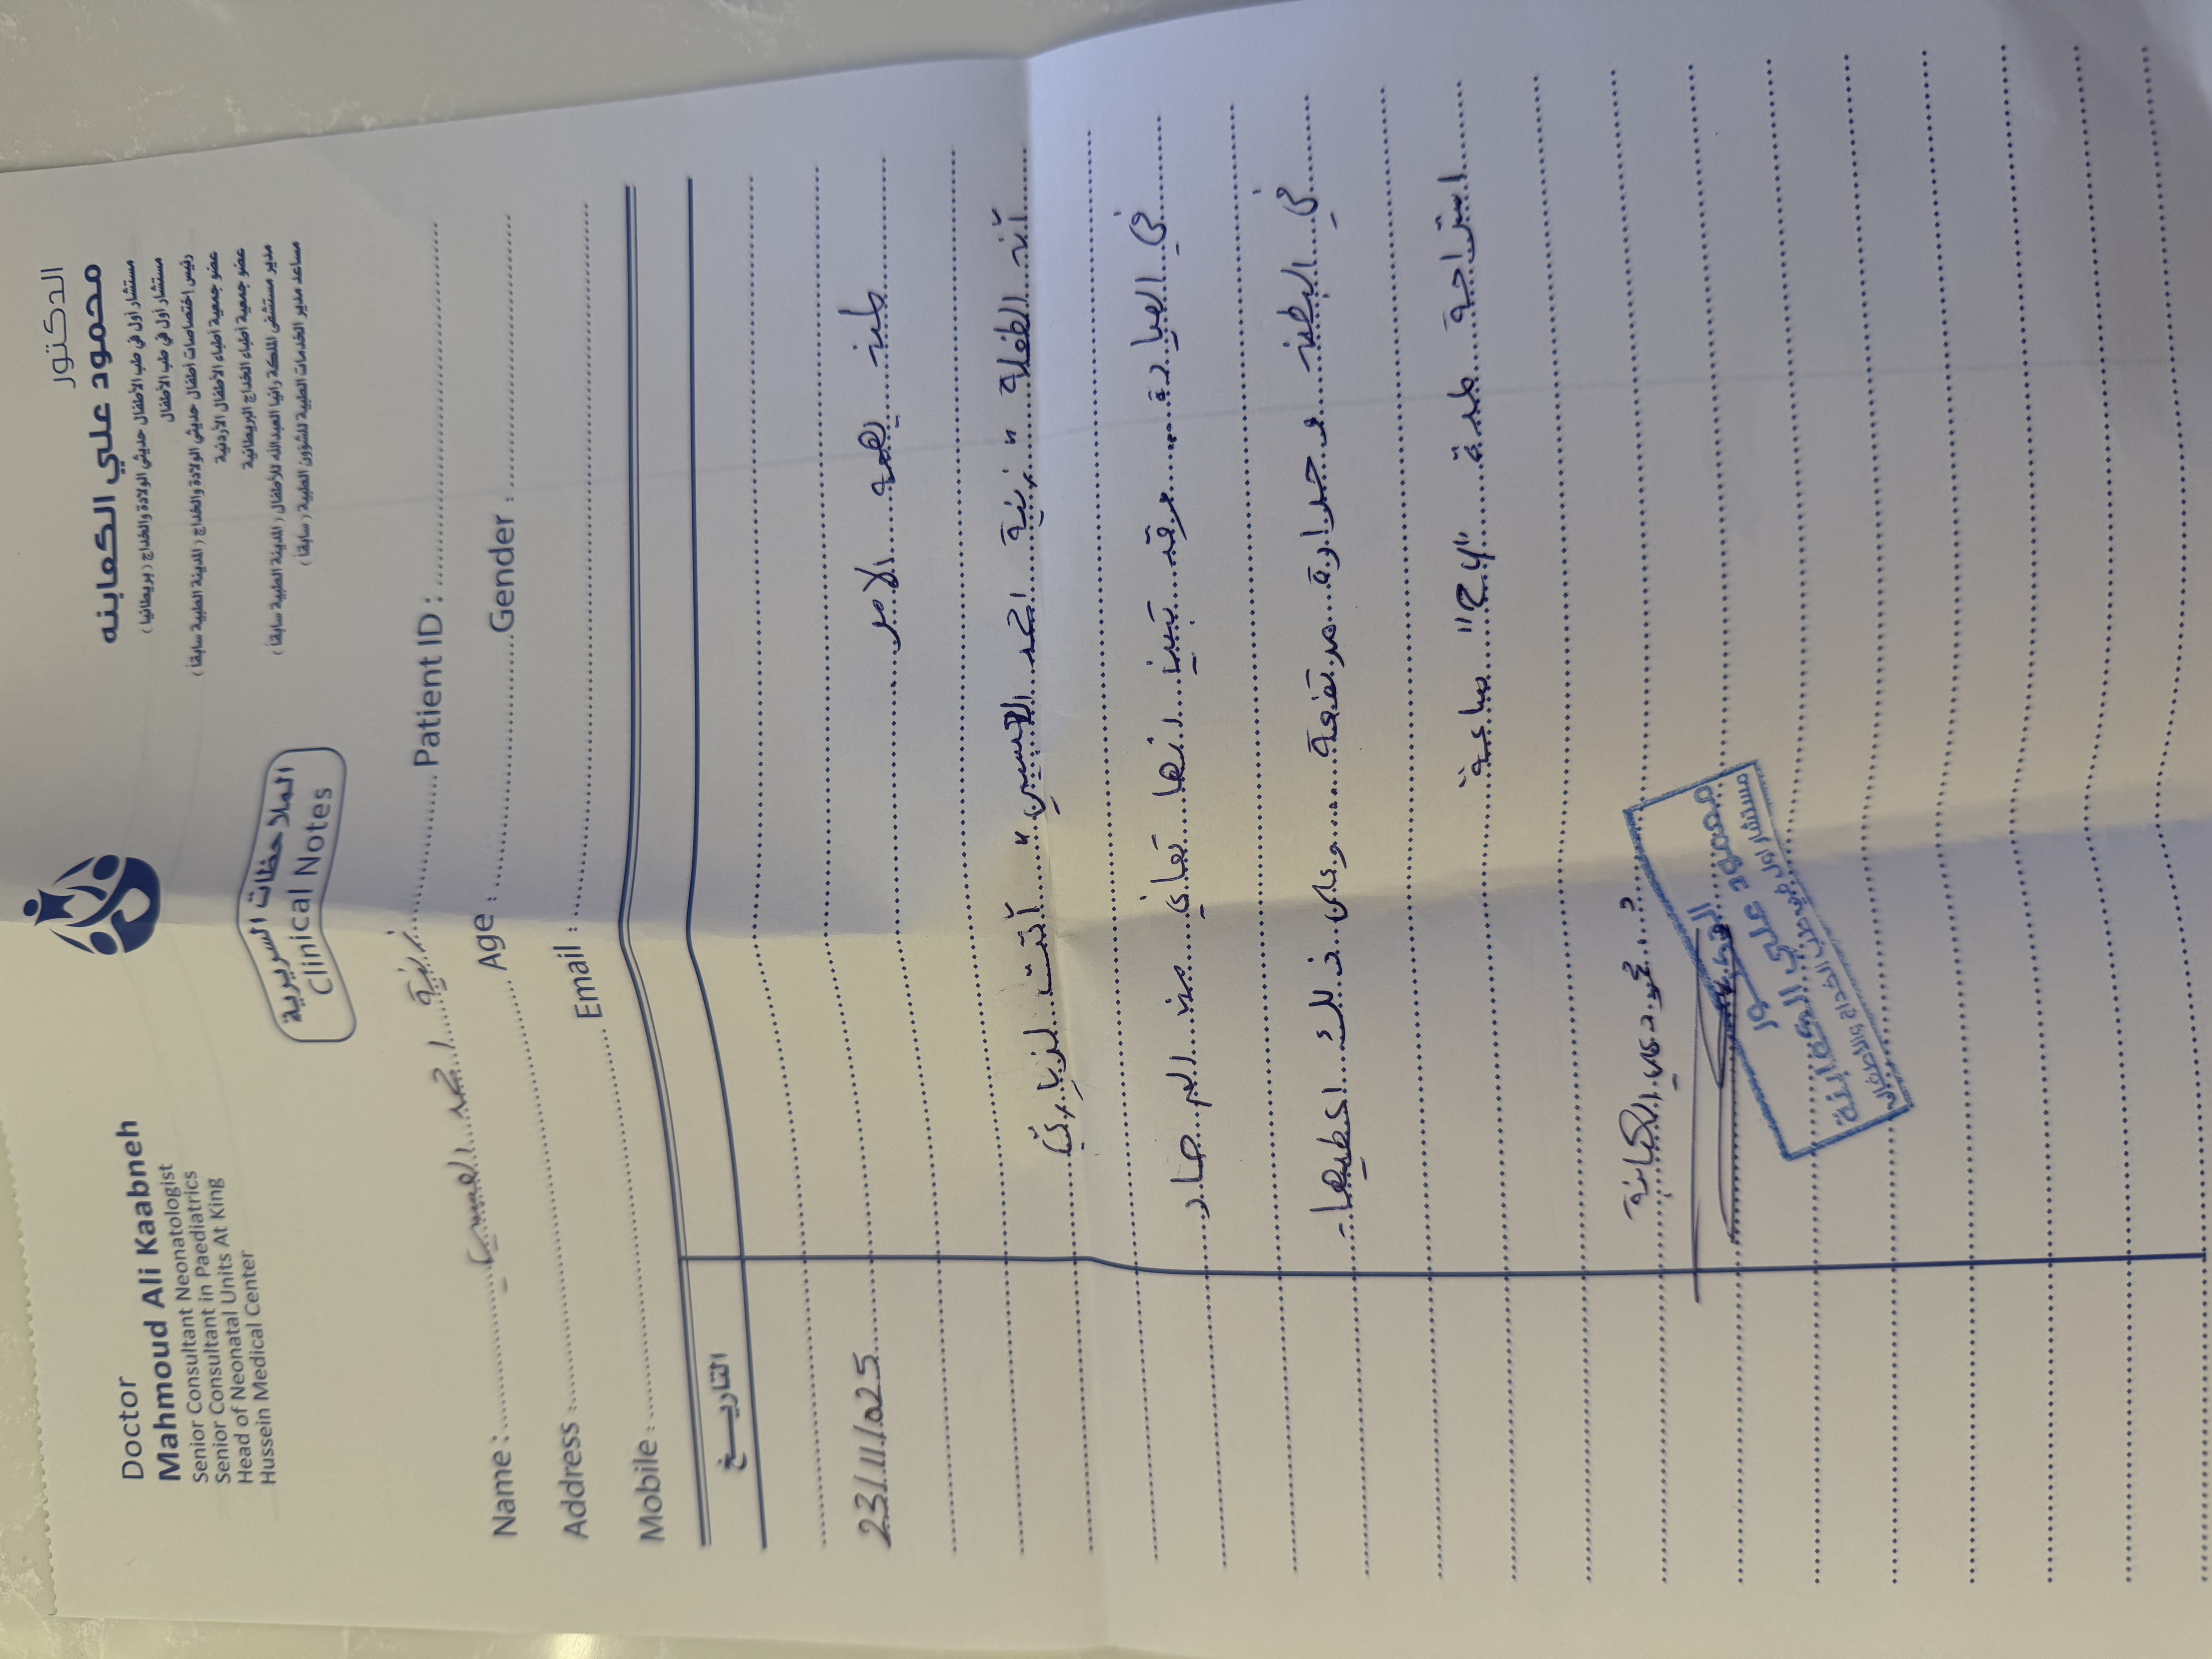 Doctor
Mahmoud Ali Kaabneh
Senior Consultant Neonatologist
Senior Consultant in Paediatrics
Senior Consultant Neonatal Units At King
Head of Neonatal
Hussein Medical Center
الدكتور
محمود علي الكعابنه
مستشار أول في طب الأطفال حديثي الولادة والخداج ( بريطانيا )
مستشار أول في طب الأطفال
رئيس اختصاصات أطفال حديثي الولادة والخداج ( المدينة الطبية سابقا )
عضو جمعية أطباء الأطفال الأردنية
عضو جمعية أطباء الخداج البريطانية
مدير مستشفى الملكة رانيا العبدالله للأطفال ( المدينة الطبية سابقا )
مساعد مدير الخدمات الطبية للشؤون الطبية ( سابقا )
الملاحظات السريرية
Clinical Notes
Name : احمد Patient ID :
Address : Age : Gender :
Mobile : Email :
التاريخ
23/11/2025
لمن يهمه الامر
أن الطفلة " احمد " أتت لزيارتي
في العيادة وقد تبين انها تعاني من الم حاد
في البطن و حرارة مرتفعة وعلى ذلك اعطيها
استراحة لمدة "24" ساعة
د. محمود علي الكعابنة
الدكتور
محمود علي الكعابنة
مستشار اول في طب الخداج والاطفال